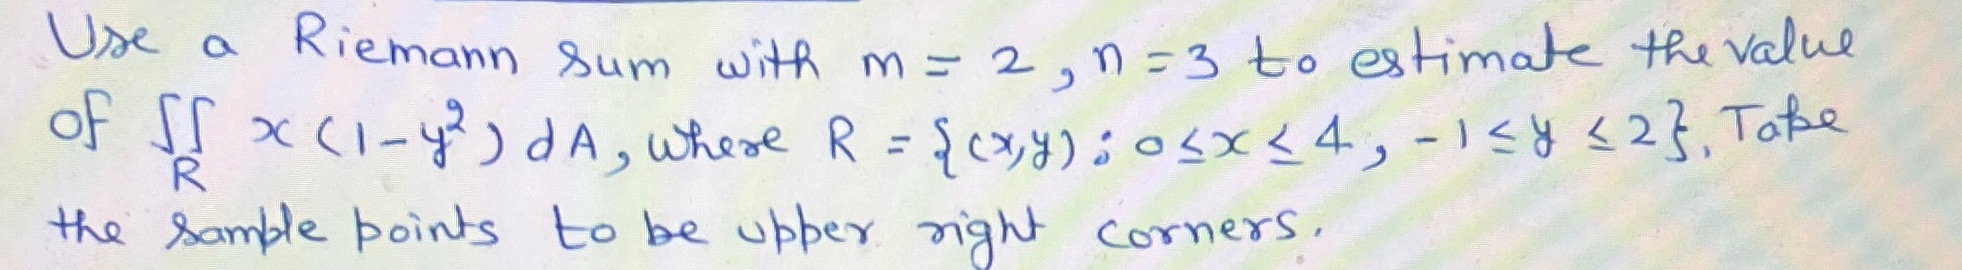 Use a Riemann sum with m = 2, n = 3 to estimate the value
of ∬_R x(1-y²) dA, where R = {(x,y) : 0 ≤ x ≤ 4, -1 ≤ y ≤ 2}. Take
the sample points to be upper right corners.